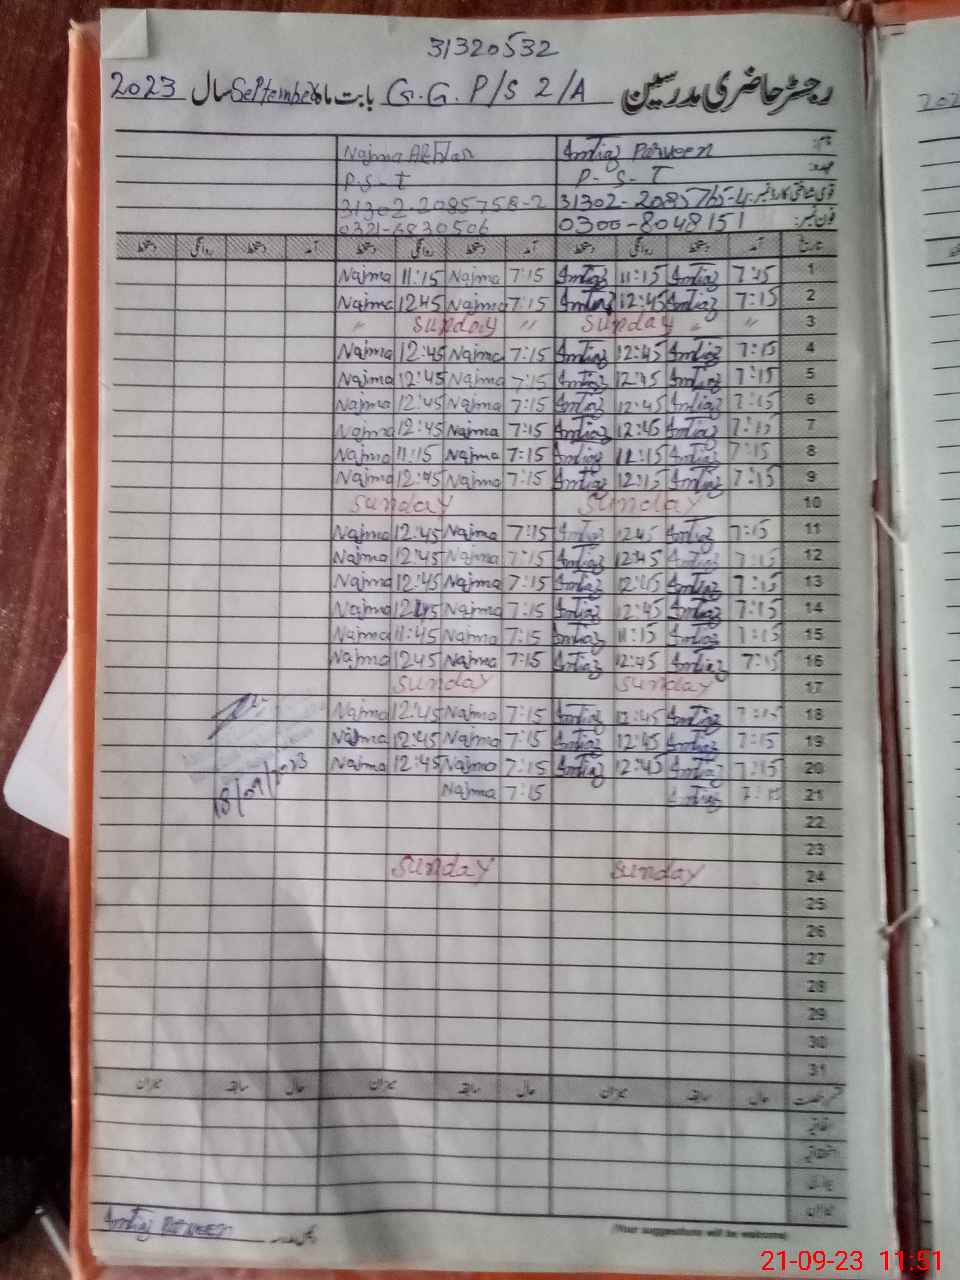 31320532
رجسٹر حاضری مدرسین G.G. P/S 2/A بابت ماہ September سال 2023
Najma Akhtar Imtiaz Parveen نام:
P-S-T P-S-T عہدہ:
31302-2085758-2 31302-2085765-4
0321-6830506 0300-8048151 فون نمبر:
دستخط روانگی دستخط آمد دستخط روانگی دستخط آمد دستخط روانگی دستخط آمد تاریخ
Najma 11:15 Najma 7:15 Imtiaz 11:15 Imtiaz 7:15 1
Najma 12:45 Najma 7:15 Imtiaz 12:45 Imtiaz 7:15 2
" Sunday " Sunday " " 3
Najma 12:45 Najma 7:15 Imtiaz 12:45 Imtiaz 7:15 4
Najma 12:45 Najma 7:15 Imtiaz 12:45 Imtiaz 7:15 5
Najma 12:45 Najma 7:15 Imtiaz 12:45 Imtiaz 7:15 6
Najma 12:45 Najma 7:15 Imtiaz 12:45 Imtiaz 7:15 7
Najma 11:15 Najma 7:15 Imtiaz 11:15 Imtiaz 7:15 8
Najma 12:45 Najma 7:15 Imtiaz 12:15 Imtiaz 7:15 9
Sunday Sunday 10
Najma 12:45 Najma 7:15 Imtiaz 12:45 Imtiaz 7:15 11
Najma 12:45 Najma 7:15 Imtiaz 12:45 Imtiaz 7:15 12
Najma 12:45 Najma 7:15 Imtiaz 12:45 Imtiaz 7:15 13
Najma 12:45 Najma 7:15 Imtiaz 12:45 Imtiaz 7:15 14
Najma 11:45 Najma 7:15 Imtiaz 11:15 Imtiaz 7:15 15
Najma 12:45 Najma 7:15 Imtiaz 12:45 Imtiaz 7:15 16
Sunday Sunday 17
Najma 12:45 Najma 7:15 Imtiaz 12:45 Imtiaz 7:15 18
Najma 12:45 Najma 7:15 Imtiaz 12:45 Imtiaz 7:15 19
Najma 12:45 Najma 7:15 Imtiaz 12:45 Imtiaz 7:15 20
18/09/2023
Najma 7:15 Imtiaz 7:15 21
22
23
Sunday Sunday 24
25
26
27
28
29
30
31
میزان سابقہ حال میزان سابقہ حال میزان سابقہ حال
اتفاقیہ
استحقاقیہ
میزان
Imtiaz Parveen
(Your suggestions will be welcome)
21-09-23 11:51